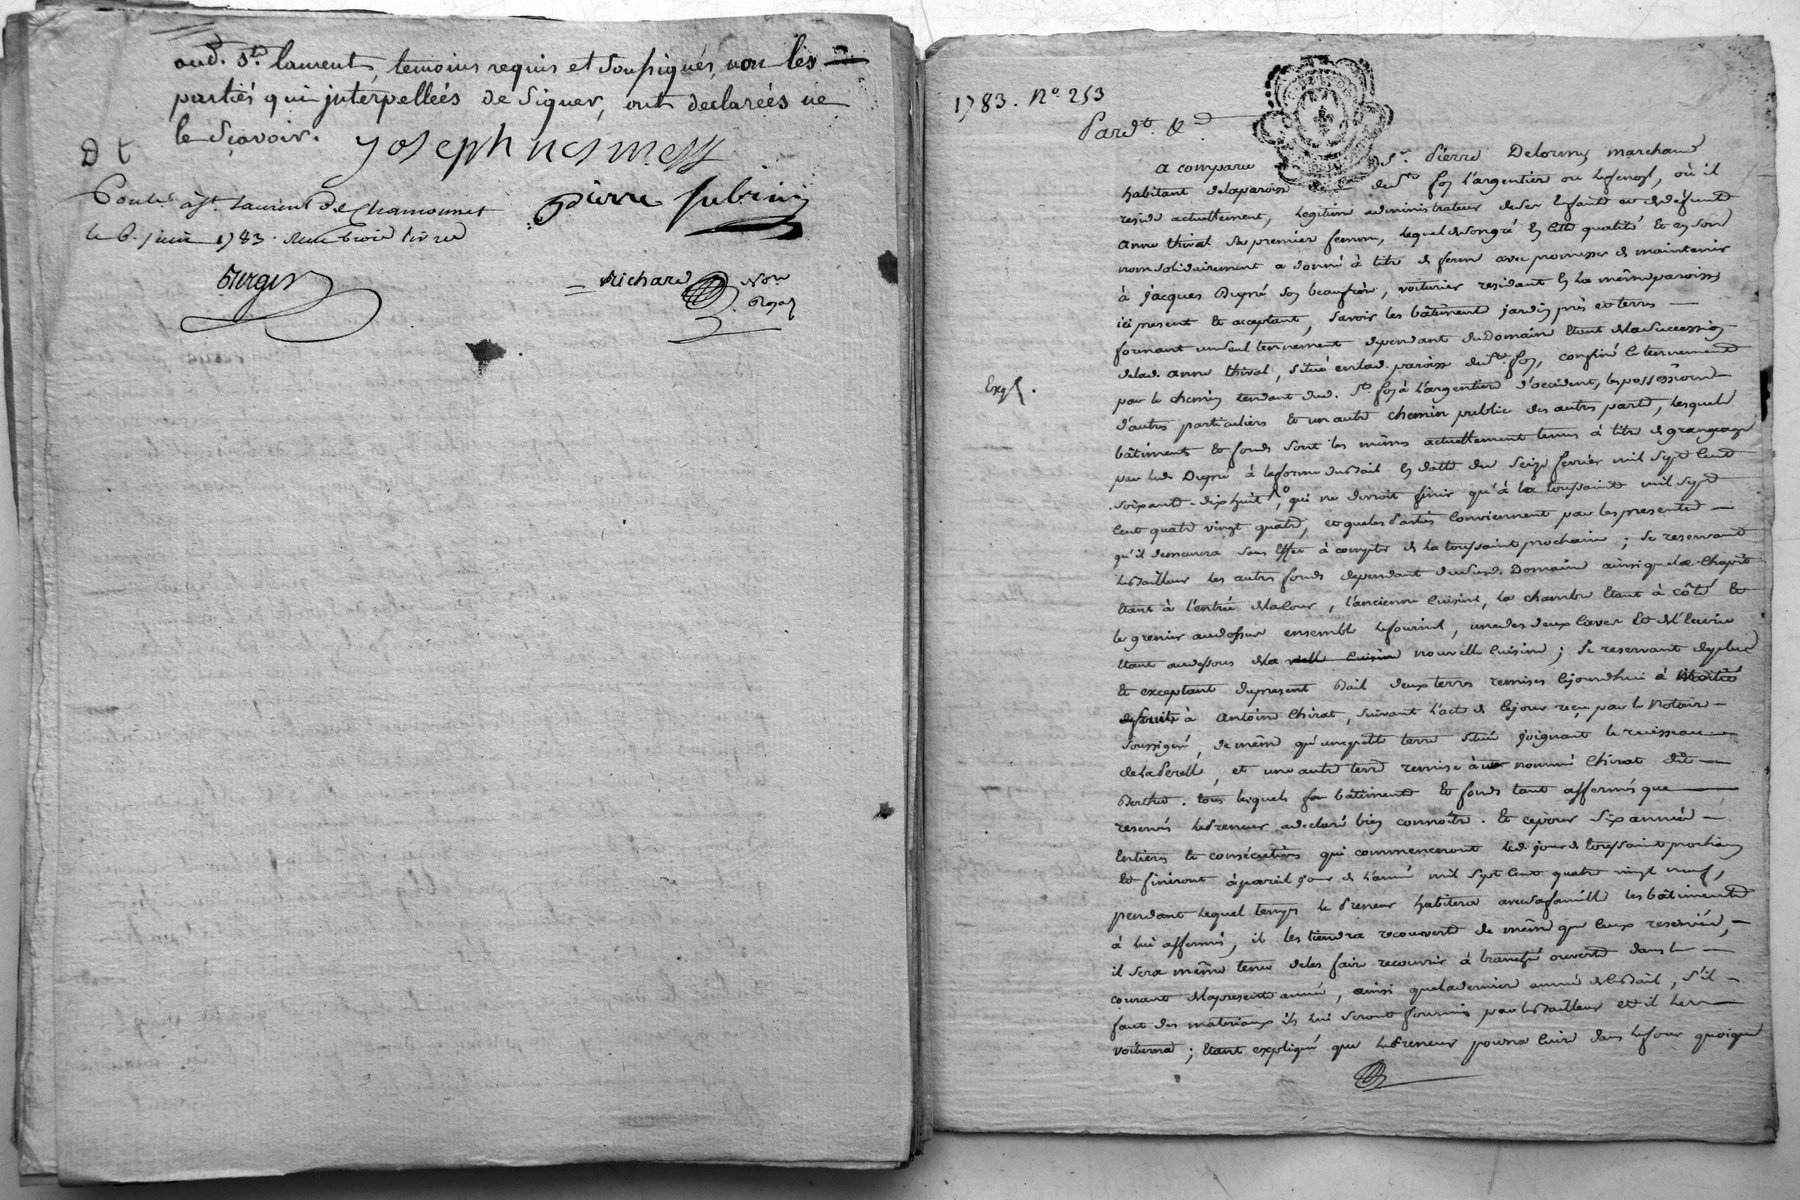 aud. St. laurent, temoins requis et soussignés, non les
partiés qui jnterpelleés de Signer, ont declareés ne
le Sçavoir.
D t
joseph
pierre jubrin
Conte. à St. Laurent De Chamousset
le 6. juin 1783. Reçu trois livres
= Richard Nore. Royal
1783. N° 253
Pardt. &a
A comparu Sr. Pierre Delorme marchand
habitant de la paroisse de Ste. foy l'argentiere ou , où il
reside actuellement, legitime administrateur de ses Enfants et de défunte
Anne thival sa premier femme, lequel de son gré En cette qualité Et en son
nom solidairement a donné à titre de ferme avec promesse de maintenir
à jacques Dupré Son beaufrère, voiturier residant En la même paroisse
ici present Et acceptant, Savoir les bâtiments jardin prés et terres
formant un seul tenement dependant du Domaine Etant de la Succession
de lad. Anne thival, situé en lad. paroisse de Ste. foy, confiné le tenement
par le chemin tendant dud. Ste. foy à l'argentiere d'occident, les possessions
d'autres particuliers Et un autre chemin public des autres parts, lesquels
bâtiments Et fonds sont les mêmes actuellement tenus à titre de grangeage
par led. Dupré à la forme du Bail En datte du Seize fevrier mil Sept Cent
soixante-dix huit, qui ne devoit finir qu'à la toussaints mil Sept
Cent quatre vingt quatre, et que les Parties Conviennent par les presentes
qu'il demeurera sans Effet à compter de la toussaint prochaine; Se reservant
le Bailleur les autres fonds dependant dud. Domaine ainsi que le Chapit
Etant à l'entrée de la Cour, l'ancienne Cuisine, la chambre Etant à côté Et
le grenier au dessus ensemble le fournil, une des deux Caves Et de l'Ecurie
Etant au dessous de la nouvelle Cuisine; Se reservant de plus
Et exceptant du present Bail deux terres remises Cejourdhui à Moitié
de fruits à Antoine Chirat, suivant l'acte de Cejour reçu par le Notaire
Soussigné, de même qu'une petite terre située joignant le ruisseau
de la Perelle, et une autre terre remise à un nommé Chirat dit
Berthet. tous lesquels bâtiments Et fonds tant affermés que
reservés le Preneur a declaré bien connoitre. Et ce pour Six années
Entieres Et consécutives qui commenceront led. jour de toussaint prochain
Et finiront à pareil jour de l'année mil Sept Cent quatre vingt neuf,
pendant lequel temps le Preneur habitera avec sa famille les bâtiments
à lui affermés, il les tiendra recouverts de même que Ceux reservés,
il sera même tenu de les faire recouvrir à tranche ouverte dans le
courant de la presente année, ainsi que la derniere année du Bail, S'il
faut des materiaux ils lui seront fournis par le Bailleur et il les
voiturera; Etant expliqué que le Preneur pourra Cuire dans le four quoique